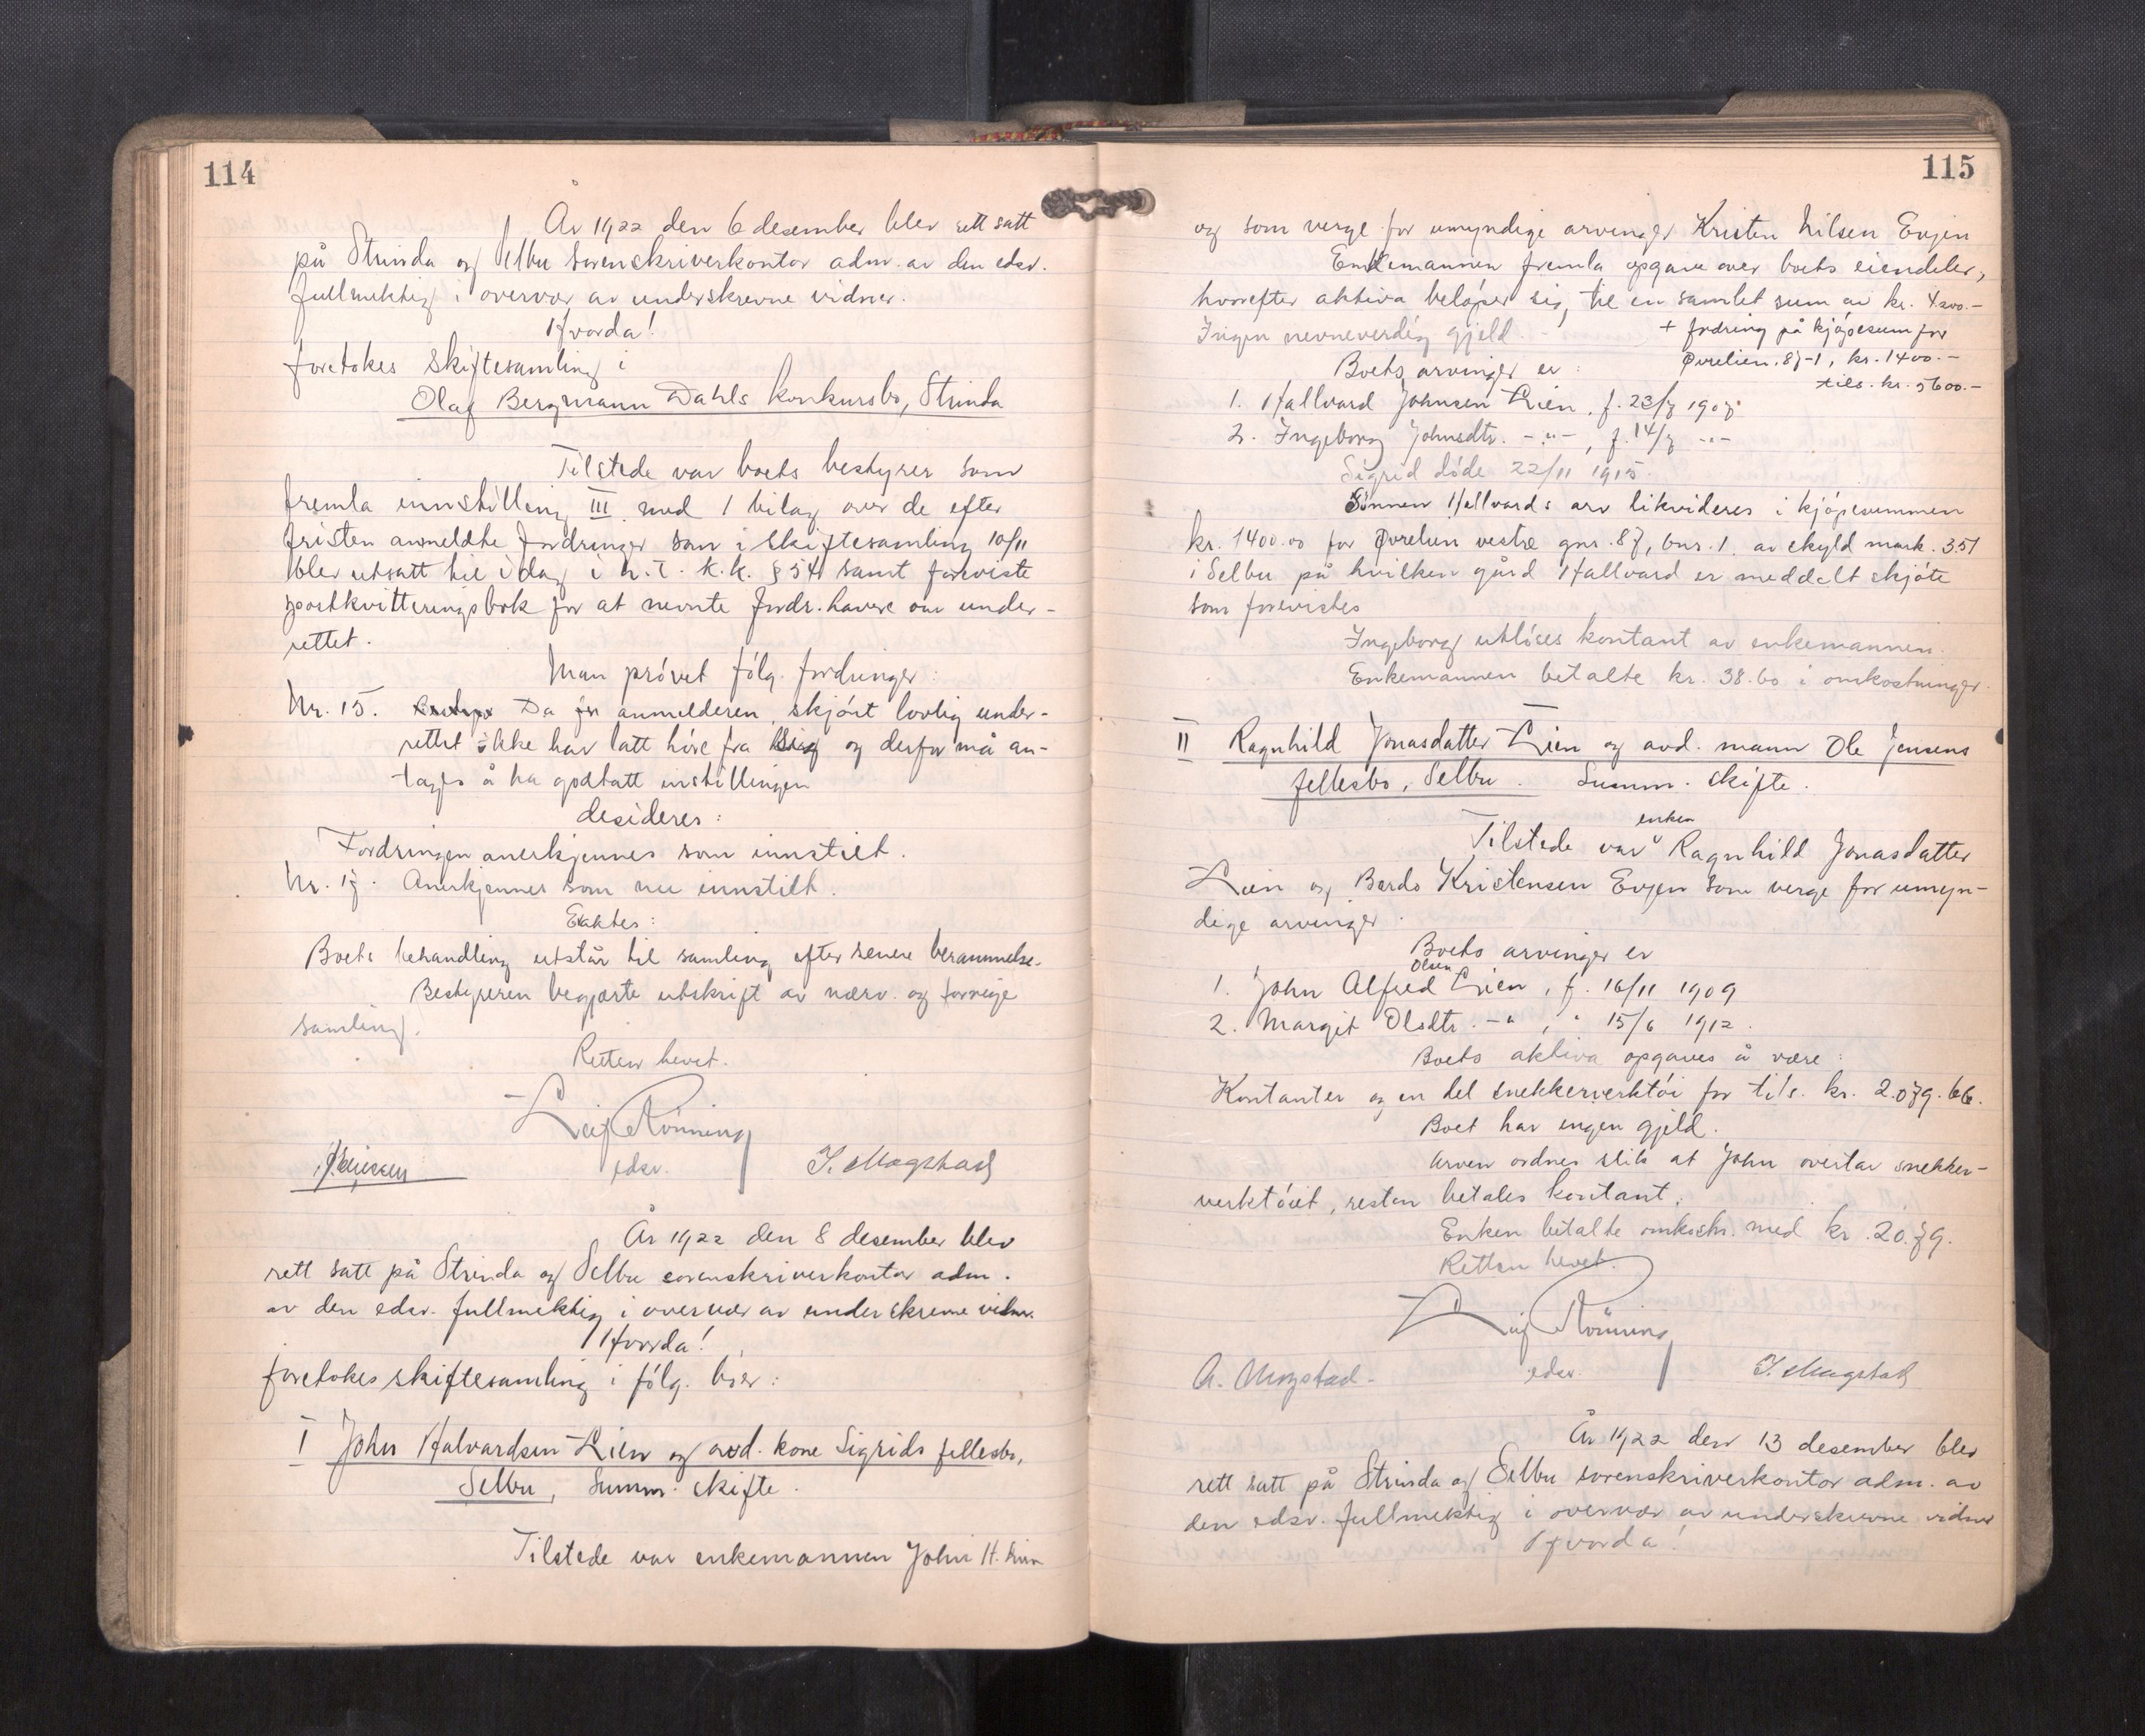 114
År 1922 den 6 desember blev rett satt
på Strinda og Selbu sorenskriverkontor adm. av den edsv.
fullmektig i overvær av underskrevne vidner.
Hvorda!
foretokes skiftesamling i
Olaf Bergmann Dahls konkursbo, Strinda
Tilstede var boets bestyrer som
fremla innstilling III med 1 bilag over de efter
fristen anmeldte fordringer som i skiftesamling 10/11
blev utsatt til idag i h.t. k.k. § 54 samt foreviste
postkvitteringsbok for at nevnte fordr. havere var under-
rettet.
Man prøvet følg. fordringer:
Nr. 15. Da anmelderen, skjønt lovlig under-
rettet ikke har latt høre fra sig og derfor må an-
tages å ha godtatt instillingen
desideres:
Fordringen anerkjennes som innstilt.
Nr. 17. Anerkjennes som nu innstilt.
Eaktes:
Boets behandling utstår til samling efter senere berammelse.
Bestyreren begjærte utskrift av nærv. og forrige
samling.
Retten hevet.
Leif Rønning
edsv.
I. Mogstad
År 1922 den 8 desember blev
rett satt på Strinda og Selbu sorenskriverkontor adm.
av den edsv. fullmektig i overvær av underskrevne vidner.
Hvorda!
foretokes skiftesamling i følg. boer:
I John Halvardsen Lien og avd. kone Sigrids fellesbo,
Selbu, Summ. skifte.
Tilstede var enkemannen John H. Lien
115
og som verge for umyndige arvinger Kristen Nilsen Evjen
Enkemannen fremla opgave over boets eiendeler,
hvorefter aktiva beløper sig til en samlet sum av kr. 4200.-
Ingen nevneverdig gjeld. + fordring på kjøpesum for
Øvrelien 87-1, kr. 1400.-
tils. kr. 5600.-
Boets arvinger er:
1. Hallvard Johnsen Lien, f. 23/7 1907
2. Ingeborg Johnsdtr. -"-, f. 14/7 -"-
Sigrid døde 22/11 1915.
Sønnen Hallvards arv likvideres i kjøpesummen
kr. 1400.00 for Øvrelien vestre gnr. 87, bnr. 1. av skyld mark. 3.51
i Selbu på hvilken gård Hallvard er meddelt skjøte
som forevistes
Ingeborg utløses kontant av enkemannen.
Enkemannen betalte kr. 38.60 i omkostninger.
II Ragnhild Jonasdatter Lien og avd. mann Ole Jensens
fellesbo, Selbu. Summ. skifte.
Tilstede var enken Ragnhild Jonasdatter
Lien og Bardo Kristensen Evjen som verge for umyn-
dige arvinger.
Boets arvinger er
1. John Alfred Olsen Lien, f. 16/11 1909
2. Margit Olsdtr. -" , " 15/6 1912.
Boets aktiva opgaves å være:
Kontanter og en del snekkerverktøi for tils. kr. 2.079.66.
Boet har ingen gjeld.
Arven ordnes slik at John overtar snekker-
verktøiet, resten betales kontant.
Enken betalte omkostn. med kr. 20.79.
Retten hevet.
Leif Rønning
edsv.
A. Mogstad.
I. Mogstad
År 1922 den 13 desember blev
rett satt på Strinda og Selbu sorenskriverkontor adm. av
den edsv. fullmektig i overvær av underskrevne vidner
Hvorda!